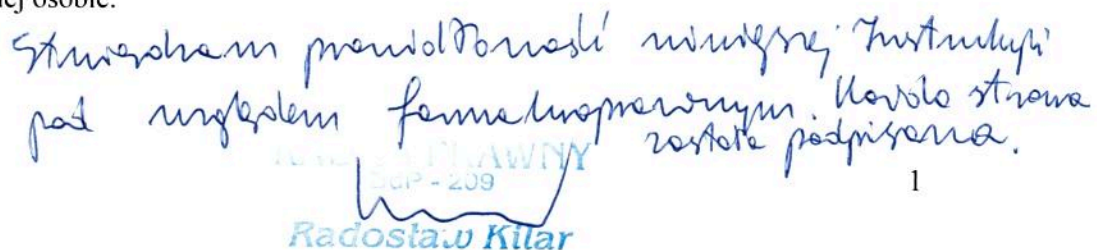 nej osobie.
Stwierdzam prawidłowość niniejszej Instrukcji
pod względem formalnoprawnym. Każda strona
została podpisana.
RADCA PRAWNY
- 209
1
Radosław Kilar